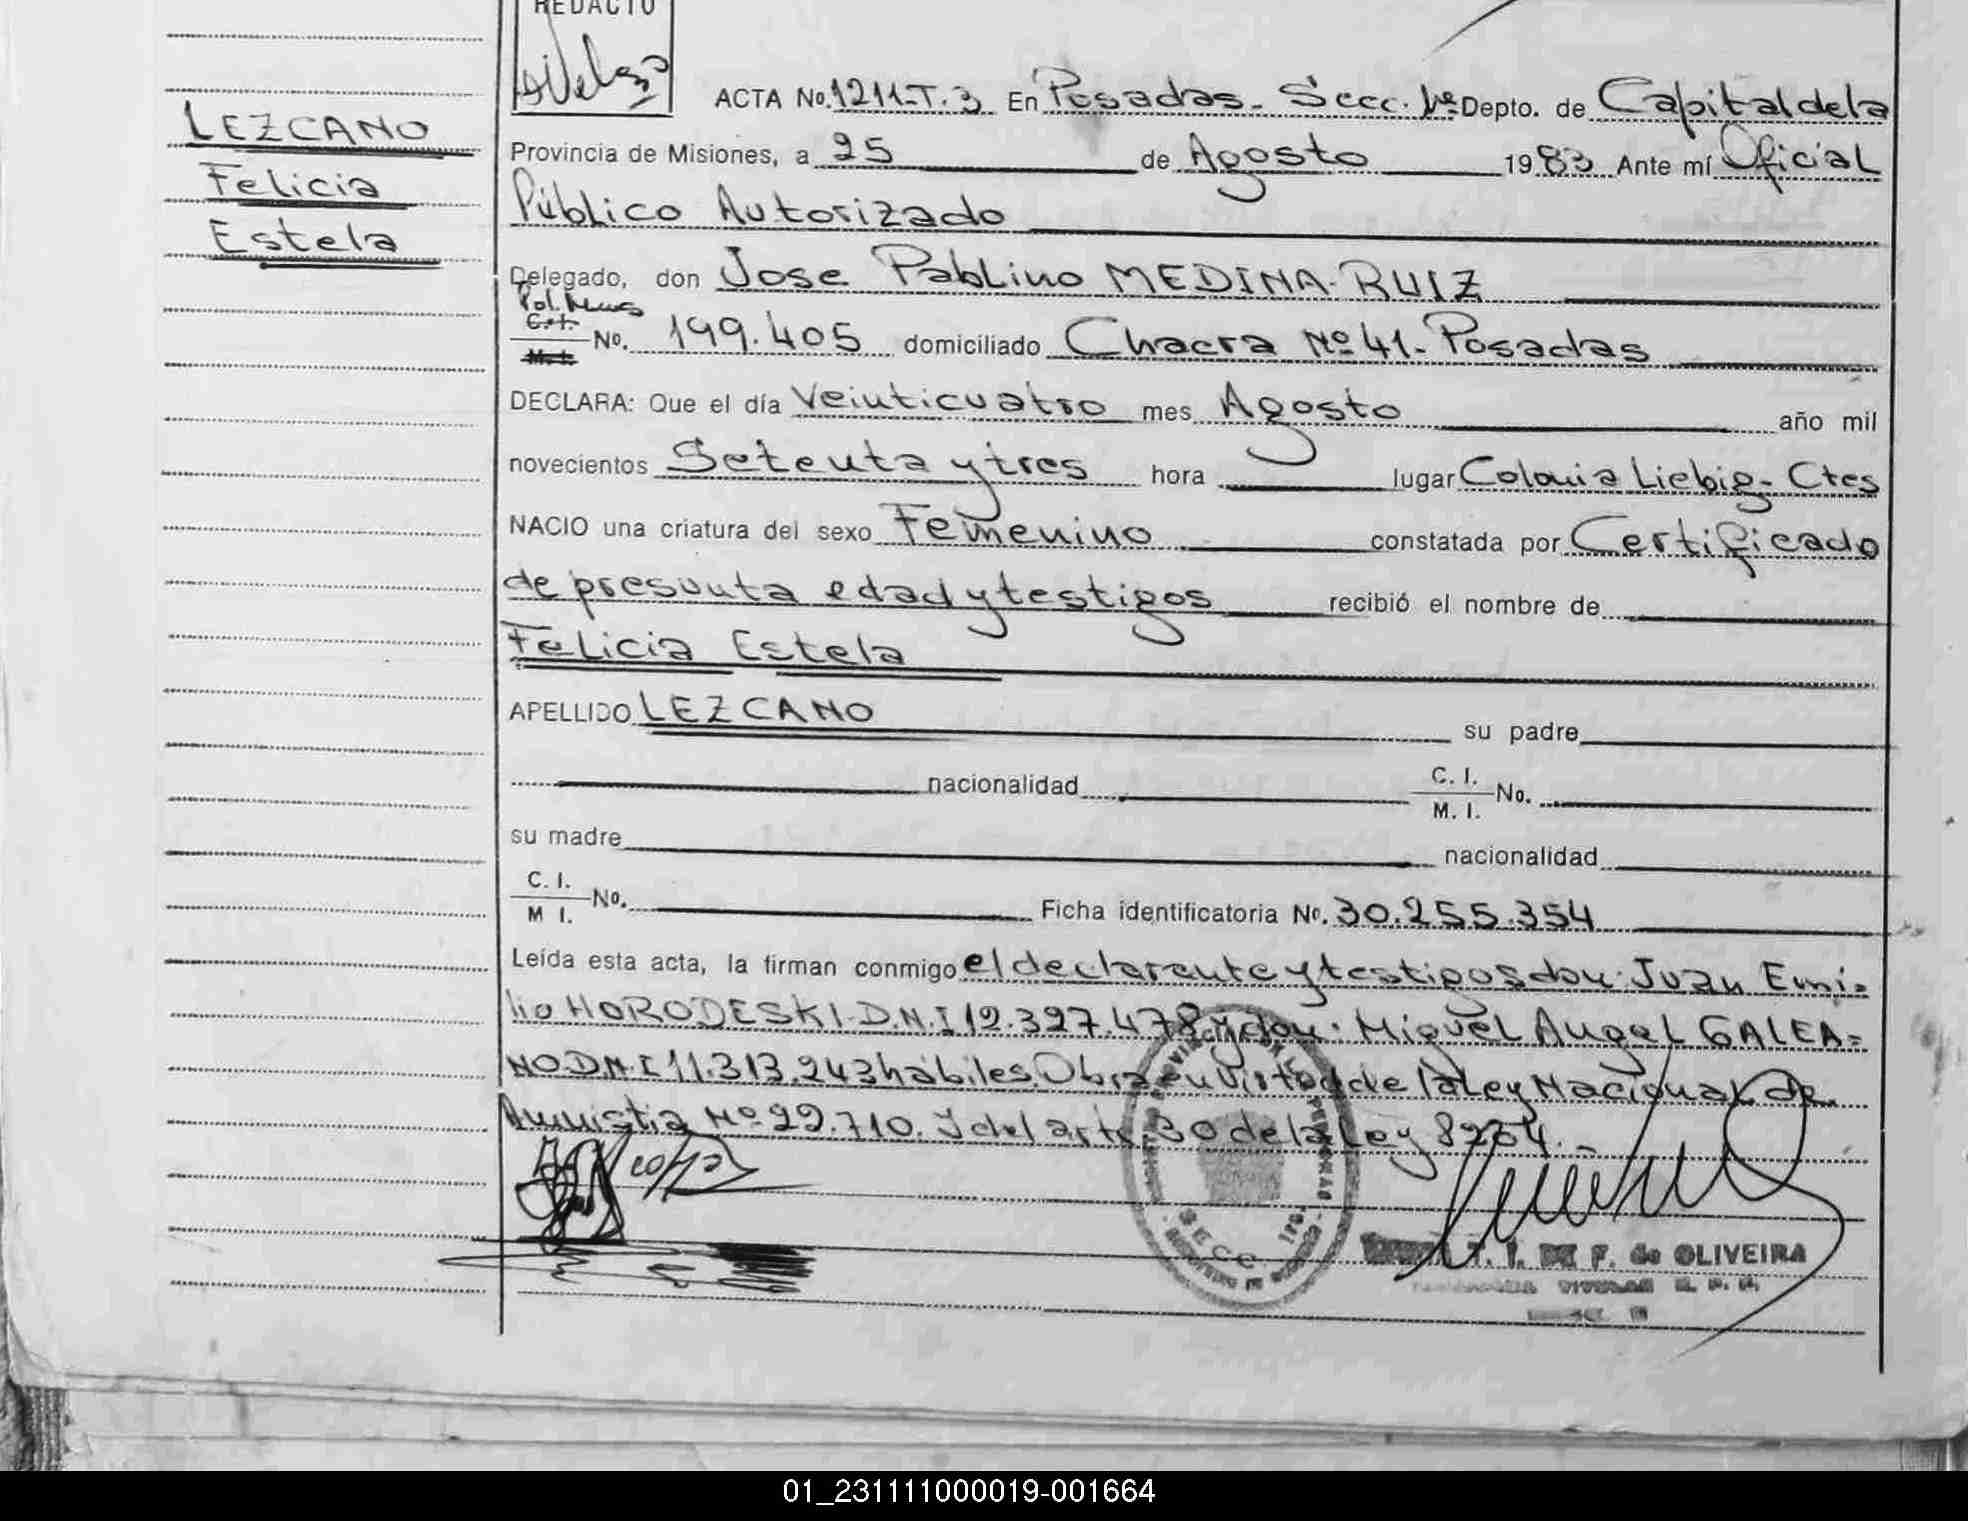 REDACTO
LEZCANO
Felicia
Estela
ACTA No. 1211-T.3 En Posadas - Secc. 1ª Depto. de Capital de la
Provincia de Misiones, a 25 de Agosto 1983 Ante mí Oficial
Público Autorizado
Delegado, don Jose Pablino MEDINA-RUIZ
No. 199.405 domiciliado Chacra Nº 41- Posadas
DECLARA: Que el día Veinticuatro mes Agosto año mil
novecientos Setenta y tres hora lugar Colonia Liebig - Ctes
NACIO una criatura del sexo Femenino constatada por Certificado
de presunta edad y testigos recibió el nombre de
Felicia Estela
APELLIDO LEZCANO su padre
nacionalidad C. I. / M. I. No.
su madre nacionalidad
C. I. / M I. No. Ficha identificatoria No. 30.255.354
Leída esta acta, la firman conmigo el declarante y testigos don: Juan Emi=
lio HORODESKI-D.N.I 12.327.478 y don: Miguel Angel GALEA=
NO D.N.I 11.313.243 hábiles. Obra en Virtod de la Ley Nacional de
Amnistia Nº 22.710. Y del art. 30 de la Ley 8204.-
SECC. 1ra.
T. I. DE F. de OLIVEIRA
TITULAR R. P. P.
01_231111000019-001664